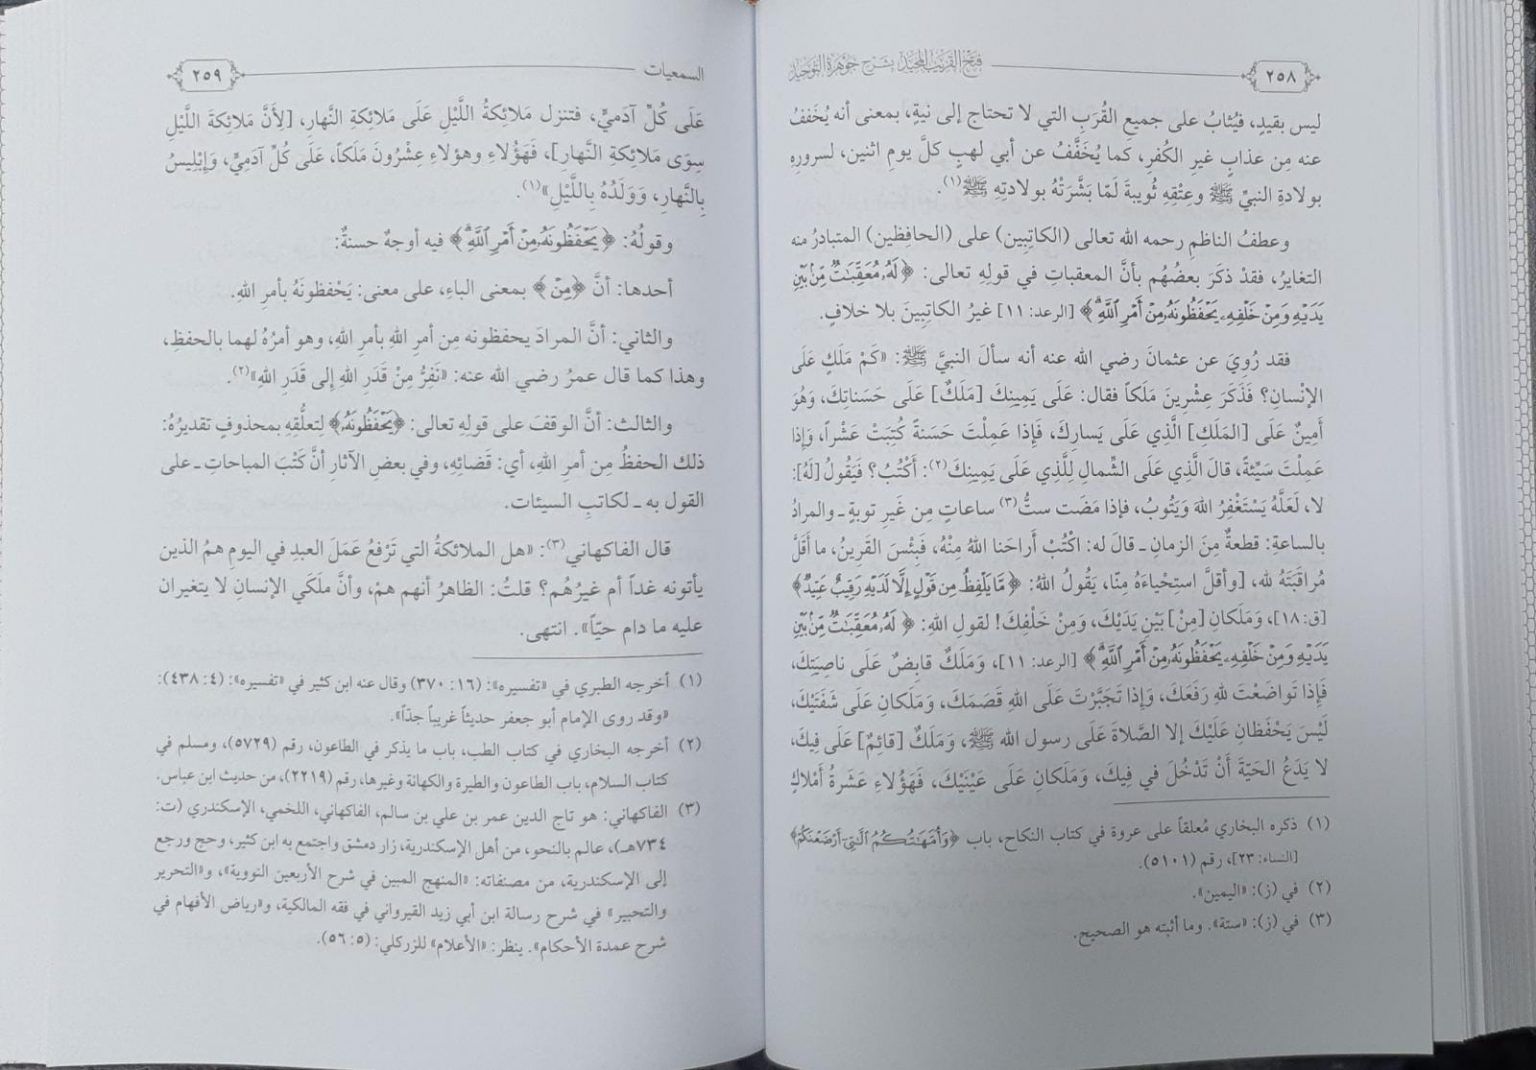 ٢٥٨ فتح القريب المجيد بشرح جوهرة التوحيد
ليس بقيدٍ، فيُثابُ على جميعِ القُرَبِ التي لا تحتاج إلى نيةٍ، بمعنى أنه يُخَففُ
عنه مِن عذابٍ غيرِ الكُفرِ، كَما يُخَفَّفُ عن أبي لهبٍ كلَّ يومِ اثنين، لسرورِهِ
بولادةِ النبيِّ ﷺ وعِتْقِهِ ثُويبةَ لَمّا بَشَّرَتْهُ بولادتِهِ ﷺ(١).
وعطفُ الناظمِ رحمه الله تعالى (الكاتِبِين) على (الحافظين) المتبادرُ منه
التغايرُ، فقدْ ذكَرَ بعضُهُم بأنَّ المعقباتِ في قولِهِ تعالى: ﴿لَهُۥ مُعَقِّبَٰتٌ مِّنۢ بَيْنِ
يَدَيْهِ وَمِنْ خَلْفِهِۦ يَحْفَظُونَهُۥ مِنْ أَمْرِ ٱللَّهِ﴾ [الرعد: ١١] غيرُ الكاتِبِينَ بلا خلافٍ.
فقد رُوِيَ عن عثمانَ رضي الله عنه أنه سألَ النبيَّ ﷺ: «كَمْ مَلَكٍ عَلَى
الإنْسانِ؟ فَذَكَرَ عِشْرِينَ مَلَكاً فقال: عَلَى يَمِينِكَ [مَلَكٌ] عَلَى حَسَناتِكَ، وَهُوَ
أَمِينٌ عَلَى [المَلَكِ] الَّذِي عَلَى يَسارِكَ، فَإِذا عَمِلْتَ حَسَنةً كُتِبَتْ عَشْراً، وَإِذا
عَمِلْتَ سَيِّئةً، قالَ الَّذِي عَلَى الشِّمالِ لِلَّذِي عَلَى يَمِينِكَ(٢): أَكْتُبُ؟ فَيَقُولُ [لَهُ]:
لا، لَعَلَّهُ يَسْتَغْفِرُ اللهَ وَيَتُوبُ، فإذا مَضَت ستُّ(٣) ساعاتٍ مِن غَيرِ توبةٍ ـ والمرادُ
بالساعةِ: قطعةٌ مِنَ الزمانِ ـ قالَ له: اكْتُبْ أَراحَنا اللهُ مِنْهُ، فَبِئْسَ القَرِينُ، ما أَقَلَّ
مُراقَبَتَهُ لله، [وأقلَّ استِحْياءَهُ مِنّا، يَقُولُ اللهُ: ﴿مَّا يَلْفِظُ مِن قَوْلٍ إِلَّا لَدَيْهِ رَقِيبٌ عَتِيدٌ﴾
[ق: ١٨]، وَمَلَكانِ [مِنْ] بَيْنِ يَدَيْكَ، وَمِنْ خَلْفِكَ! لقولِ اللهِ: ﴿لَهُۥ مُعَقِّبَٰتٌ مِّنۢ بَيْنِ
يَدَيْهِ وَمِنْ خَلْفِهِۦ يَحْفَظُونَهُۥ مِنْ أَمْرِ ٱللَّهِ﴾ [الرعد: ١١]، وَمَلَكٌ قابِضٌ عَلَى ناصِيَتِكَ،
فَإِذا تَواضَعْتَ لِلهِ رَفَعَكَ، وَإِذا تَجَبَّرْتَ عَلَى اللهِ قَصَمَكَ، وَمَلَكانِ عَلَى شَفَتَيْكَ،
لَيْسَ يَحْفَظانِ عَلَيْكَ إلا الصَّلاةَ عَلَى رسولِ الله ﷺ، وَمَلَكٌ [قائِمٌ] عَلَى فِيكَ،
لا يَدَعُ الحَيّةَ أَنْ تَدْخُلَ في فِيكَ، وَمَلَكانِ عَلَى عَيْنَيْكَ، فَهَؤُلاءِ عَشَرةُ أَمْلاكٍ
(١) ذكره البخاري مُعلقاً على عروة في كتاب النكاح، باب ﴿وَأُمَّهَٰتُكُمُ ٱلَّٰتِىٓ أَرْضَعْنَكُمْ﴾
[النساء: ٢٣]، رقم (٥١٠١).
(٢) في (ز): «اليمين».
(٣) في (ز): «ستة». وما أثبته هو الصحيح.
السمعيات ٢٥٩
عَلَى كُلِّ آدَميٍّ، فتنزل مَلائِكةُ اللَّيْلِ عَلَى مَلائِكةِ النَّهارِ، [لِأَنَّ مَلائِكةَ اللَّيْلِ
سِوَى مَلائِكةِ النَّهارِ]، فَهَؤُلاءِ وهؤلاءِ عِشْرُونَ مَلَكاً، عَلَى كُلِّ آدَمِيٍّ، وَإِبْلِيسُ
بِالنَّهارِ، وَوَلَدُهُ بِاللَّيْلِ»(١).
وقولُهُ: ﴿يَحْفَظُونَهُۥ مِنْ أَمْرِ ٱللَّهِ﴾ فيه أوجهٌ حسنةٌ:
أحدها: أنَّ ﴿مِنْ﴾ بمعنى الباءِ، على معنى: يَحْفظونَهُ بأمرِ اللهِ.
والثاني: أنَّ المرادَ يحفظونه مِن أمرِ اللهِ بأمرِ اللهِ، وهو أمرُهُ لهما بالحفظِ،
وهذا كما قال عمرُ رضي الله عنه: «نَفِرُّ مِنْ قَدَرِ اللهِ إِلى قَدَرِ اللهِ»(٢).
والثالث: أنَّ الوقفَ على قولِهِ تعالى: ﴿يَحْفَظُونَهُۥ﴾ لِتعلُّقِهِ بمحذوفٍ تقديرُهُ:
ذلك الحفظُ مِن أمرِ اللهِ، أي: قَضائِهِ، وفي بعضِ الآثارِ أنَّ كَتْبَ المباحاتِ ـ على
القول به ـ لكاتبِ السيئات.
قال الفاكهاني(٣): «هل الملائكةُ التي تَرْفعُ عَمَلَ العبدِ في اليومِ همُ الذين
يأتونه غداً أم غيرُهُم؟ قلتُ: الظاهرُ أنهم همْ، وأنَّ ملَكَي الإنسانِ لا يتغيران
عليه ما دام حيّاً». انتهى.
(١) أخرجه الطبري في «تفسيره»: (١٦: ٣٧٠) وقال عنه ابن كثير في «تفسيره»: (٤: ٤٣٨):
«وقد روى الإمام أبو جعفر حديثاً غريباً جدّاً».
(٢) أخرجه البخاري في كتاب الطب، باب ما يذكر في الطاعون، رقم (٥٧٢٩)، ومسلم في
كتاب السلام، باب الطاعون والطيرة والكهانة وغيرها، رقم (٢٢١٩)، من حديث ابن عباس.
(٣) الفاكهاني: هو تاج الدين عمر بن علي بن سالم، الفاكهاني، اللخمي، الإسكندري (ت:
٧٣٤هـ)، عالم بالنحو، من أهل الإسكندرية، زار دمشق واجتمع به ابن كثير، وحج ورجع
إلى الإسكندرية، من مصنفاته: «المنهج المبين في شرح الأربعين النووية»، و«التحرير
والتحبير» في شرح رسالة ابن أبي زيد القيرواني في فقه المالكية، و«رياض الأفهام في
شرح عمدة الأحكام». ينظر: «الأعلام» للزركلي: (٥: ٥٦).